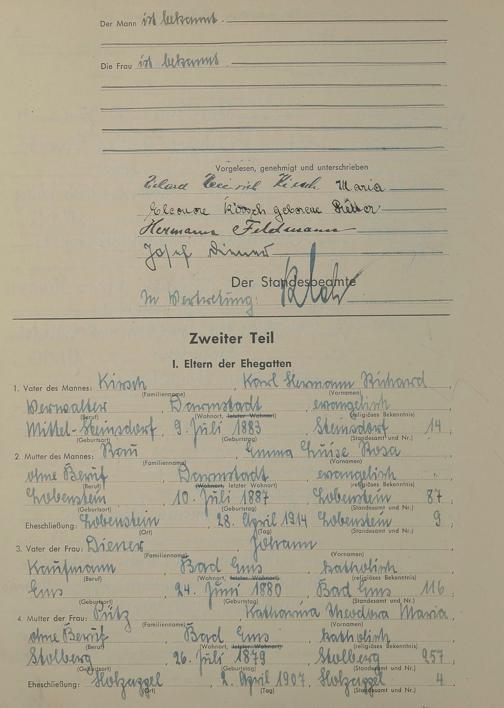 Der Mann ist bekannt.
Die Frau ist bekannt.
Vorgelesen, genehmigt und unterschrieben
Heinrich Kirsch Maria
Eleonore Kirsch geborene
Hermann Feldmann
Josef Diener
Der Standesbeamte
In Vertretung:
Zweiter Teil
I. Eltern der Ehegatten
1. Vater des Mannes: Kirsch, Karl Hermann Richard
(Familienname) (Vornamen)
Verwalter, Darmstadt, evangelisch
(Beruf) (Wohnort, letzter Wohnort) (religiöses Bekenntnis)
Mittel-Steinsdorf, 9. Juli 1883, Steinsdorf 14,
(Geburtsort) (Geburtstag) (Standesamt und Nr.)
2. Mutter des Mannes: Rau, Emma Luise Rosa
(Familienname) (Vornamen)
ohne Beruf, Darmstadt, evangelisch,
(Beruf) (Wohnort, letzter Wohnort) (religiöses Bekenntnis)
Lobenstein, 10. Juli 1887, Lobenstein 87,
(Geburtsort) (Geburtstag) (Standesamt und Nr.)
Eheschließung: Lobenstein, 28. April 1914, Lobenstein 9,
(Ort) (Tag) (Standesamt und Nr.)
3. Vater der Frau: Diener, Johann
(Familienname) (Vornamen)
Kaufmann, Bad Ems, katholisch
(Beruf) (Wohnort, letzter Wohnort) (religiöses Bekenntnis)
Ems, 24. Juni 1880, Bad Ems 116,
(Geburtsort) (Geburtstag) (Standesamt und Nr.)
4. Mutter der Frau: Pütz, Katharina Theodora Maria
(Familienname) (Vornamen)
ohne Beruf, Bad Ems, katholisch
(Beruf) (Wohnort, letzter Wohnort) (religiöses Bekenntnis)
Stolberg, 26. Juli 1879, Stolberg 957,
(Geburtsort) (Geburtstag) (Standesamt und Nr.)
Eheschließung: Holzappel, 2. April 1907, Holzappel 4,
(Ort) (Tag) (Standesamt und Nr.)